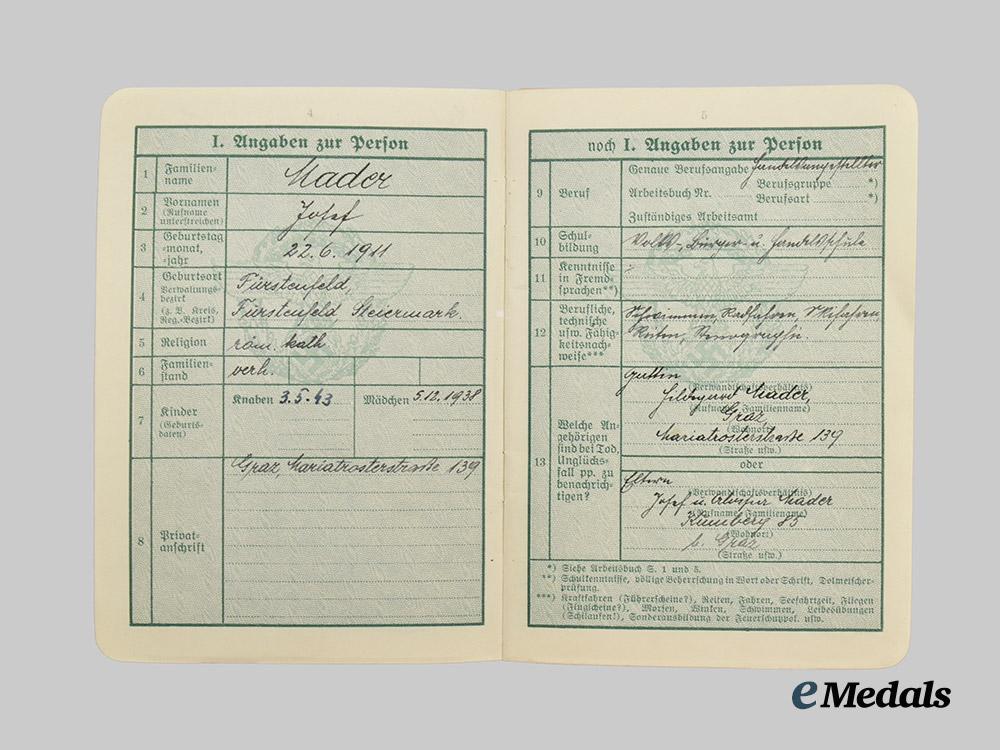 4
I. Angaben zur Person
1 Familien-
name
Mader
2 Vornamen
(Rufname
unterstreichen)
Josef
3 Geburtstag
-monat,
-jahr
22.6.1911
4 Geburtsort
Verwaltungs-
bezirk
(z. B. Kreis,
Reg.-Bezirk)
Fürstenfeld,
Fürstenfeld Steiermark.
5 Religion
röm. kath
6 Familien-
stand
verh.
7 Kinder
(Geburts-
daten)
Knaben 3.5.43
Mädchen 5.12.1938
8 Privat-
anschrift
Graz, Mariatrosterstraße 139
5
noch I. Angaben zur Person
9 Beruf
Genaue Berufsangabe Handelsangestellter
Arbeitsbuch Nr.
Berufsgruppe *)
Berufsart *)
Zuständiges Arbeitsamt
10 Schul-
bildung
Volks-, Bürger- u. Handelsschule
11 Kenntnisse
in Fremd-
sprachen**)
12 Berufliche,
technische
usw. Fähig-
keitsnach-
weise***
Schwimmen, Radfahren, Skifahren,
Reiten, Stenographie.
13 Welche An-
gehörigen
sind bei Tod,
Unglücks-
fall pp. zu
benachrich-
tigen?
Gattin
(Verwandtschaftsverhältnis)
Hildegard Mader,
(Rufname, Familienname)
Graz,
(Wohnort)
Mariatrosterstraße 139
(Straße usw.)
oder
Eltern
(Verwandtschaftsverhältnis)
Josef u. Mader
(Rufname, Familienname)
Kumberg 85
(Wohnort)
b. Graz
(Straße usw.)
*) Siehe Arbeitsbuch S. 1 und 5.
**) Schulkenntnisse, völlige Beherrschung in Wort oder Schrift, Dolmetscher-
prüfung.
***) Kraftfahren (Führerscheine?), Reiten, Fahren, Seefahrtzeit, Fliegen
(Flugscheine?), Morsen, Winken, Schwimmen, Leibesübungen
(Schilaufen!), Sonderausbildung der Feuerschutzpol. usw.
eMedals